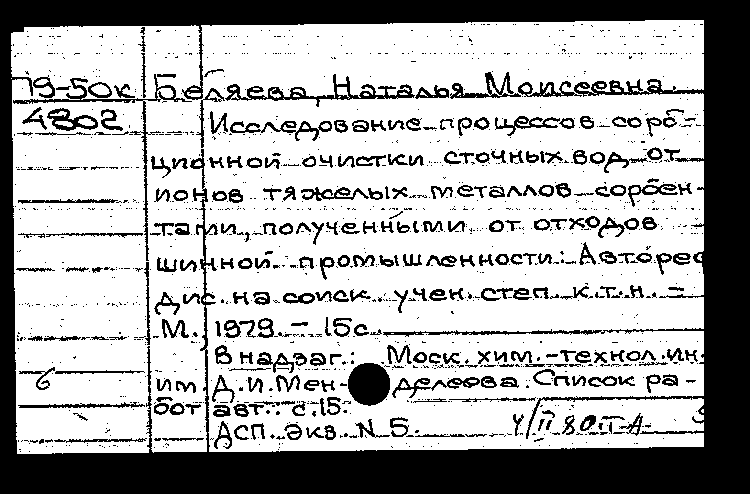 79-50к Беляева, Наталья Моисеевна.
4802 Исследование процессов сорб-
ционной очистки сточных вод от
ионов тяжелых металлов сорбен-
тами, полученными от отходов
шинной промышленности: Автореф
дис. на соиск. учен. степ. к.т.н. -
М., 1979. - 15с.
В надзаг.: Моск. хим.-технол. ин-
6 им. Д.И. Мен-делеева. Список ра-
бот авт.: с.15.
ДСП. Экз. N 5.